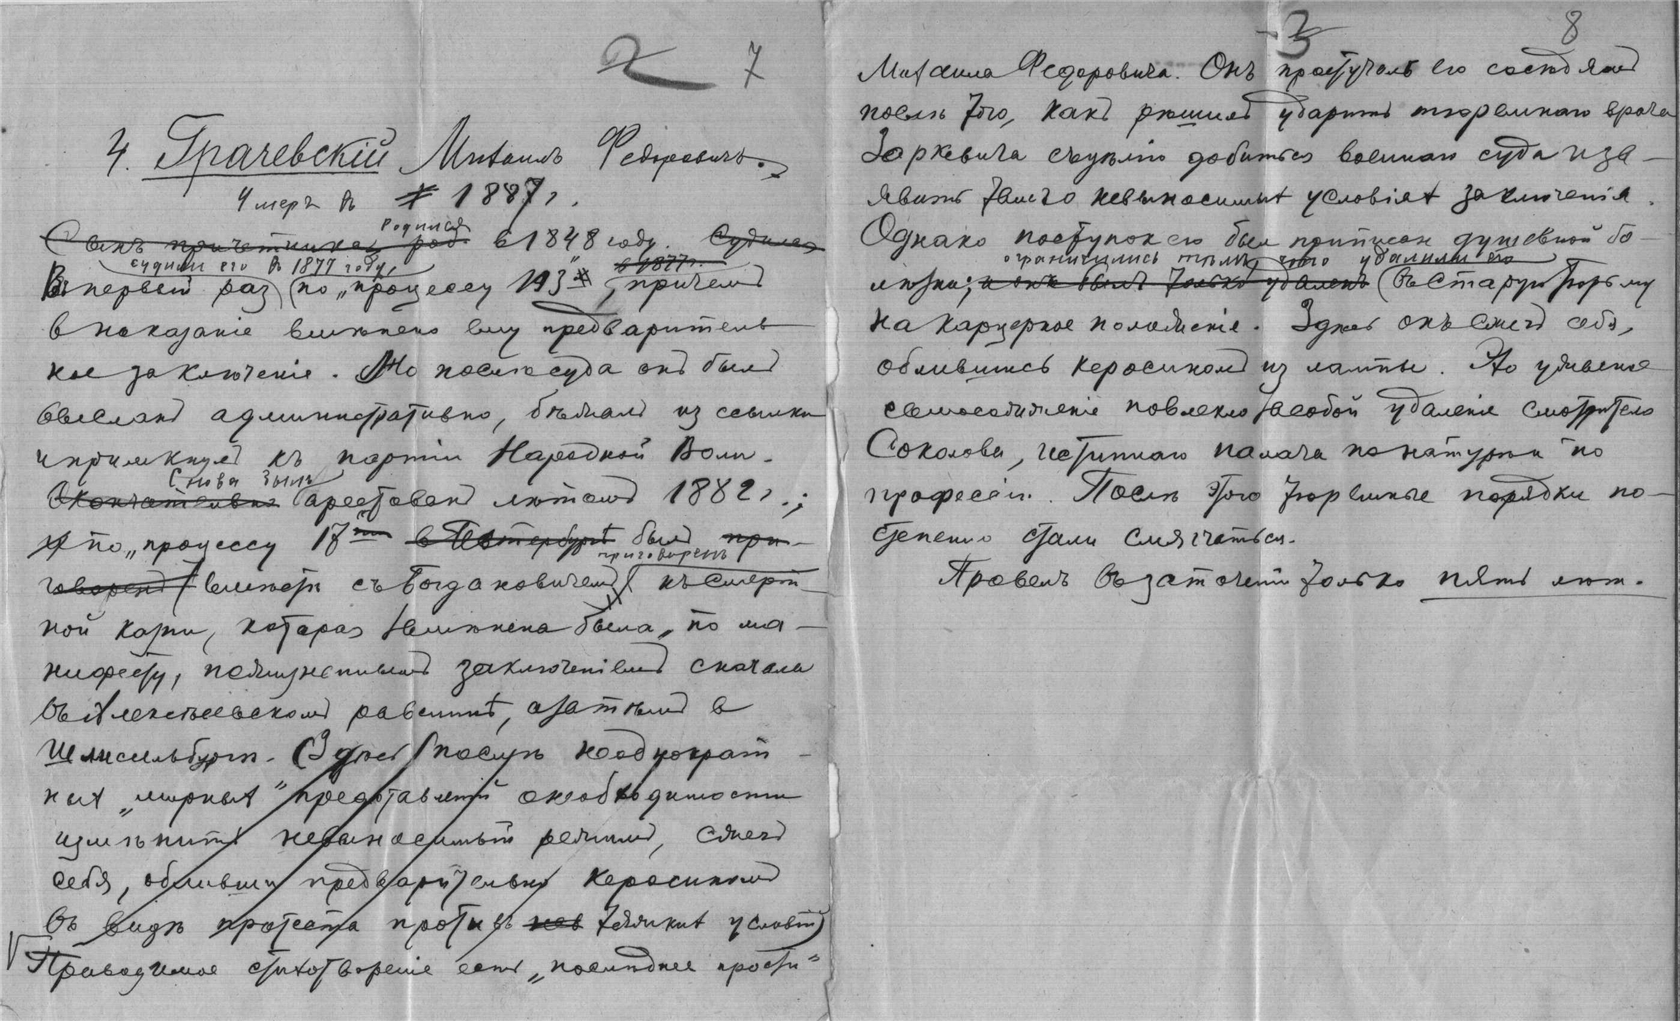 2 7
4. Грачевскій Михаилъ Федоровичъ.
Умеръ въ 1887 г.
родился
Сынъ причетника, род. в 1848 году. Судился
судили его въ 1877 году, в 1877 г.
В первый раз (по „процессу 193" , причемъ
в наказаніе вмѣнено ему предваритель
ное заключеніе. Но послѣ суда онъ былъ
высланъ административно, бѣжалъ из ссылки
и примкнулъ къ партіи Народной Воли.
Снова былъ
Окончательно арестованъ лѣтомъ 1882 г.;
по „процессу 17ти в Петербургѣ былъ при-
приговоренъ
говоренъ вмѣстѣ съ Богдановичемъ къ смерт
ной казни, которая замѣнена была, по ма-
нифесту, пожизненнымъ заключеніемъ сначала
въ Алексѣевскомъ равелинѣ, а затѣмъ в
Шлиссельбургѣ. (Здѣсь послѣ неоднократ-
ных „мирных" представленій о необходимости
измѣнить невыносимый режимъ, сжегъ
себя, обливши предварительно керосиномъ
въ видѣ протеста противъ нев тяжких условій)
Приводимое стихотвореніе есть „послѣднее прости"
3 8
Михаила Федоровича. Онъ простучалъ его сосѣдямъ
послѣ того, какъ рѣшилъ ударить тюремнаго врача
Заркевича съ цѣлью добиться военнаго суда и за-
явить тамъ о невыносимых условіях заключенія.
Однако поступок его был приписан душевной бо-
ограничились тѣмъ, что удалили его
лѣзни; и онъ былъ только удаленъ (въ Старую тюрьму
на карцерное положеніе. Здѣсь онъ сжегъ себя,
облившись керосиномъ из лампы. Это ужасное
самосожженіе повлекло за собой удаленіе смотрителя
Соколова, истиннаго палача по натурѣ и по
професіи. Послѣ этого тюремные порядки по-
степенно стали смягчаться.
Провелъ въ заточеніи только пять лѣт.